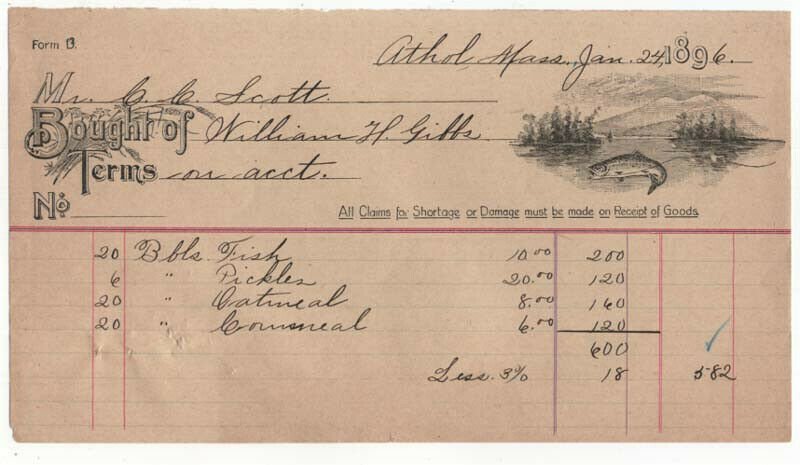 Form B.
Athol, Mass. Jan. 24, 1896.
Mr. C. C. Scott.
Bought of William H. Gibbs
Terms on acct.
No.
All Claims for Shortage or Damage must be made on Receipt of Goods.
20 Bbls. Fish 10.00 200
6 " Pickles 20.00 120
20 " Oatmeal 8.00 160
20 " Cornmeal 6.00 120
600
Less 3% 18 582